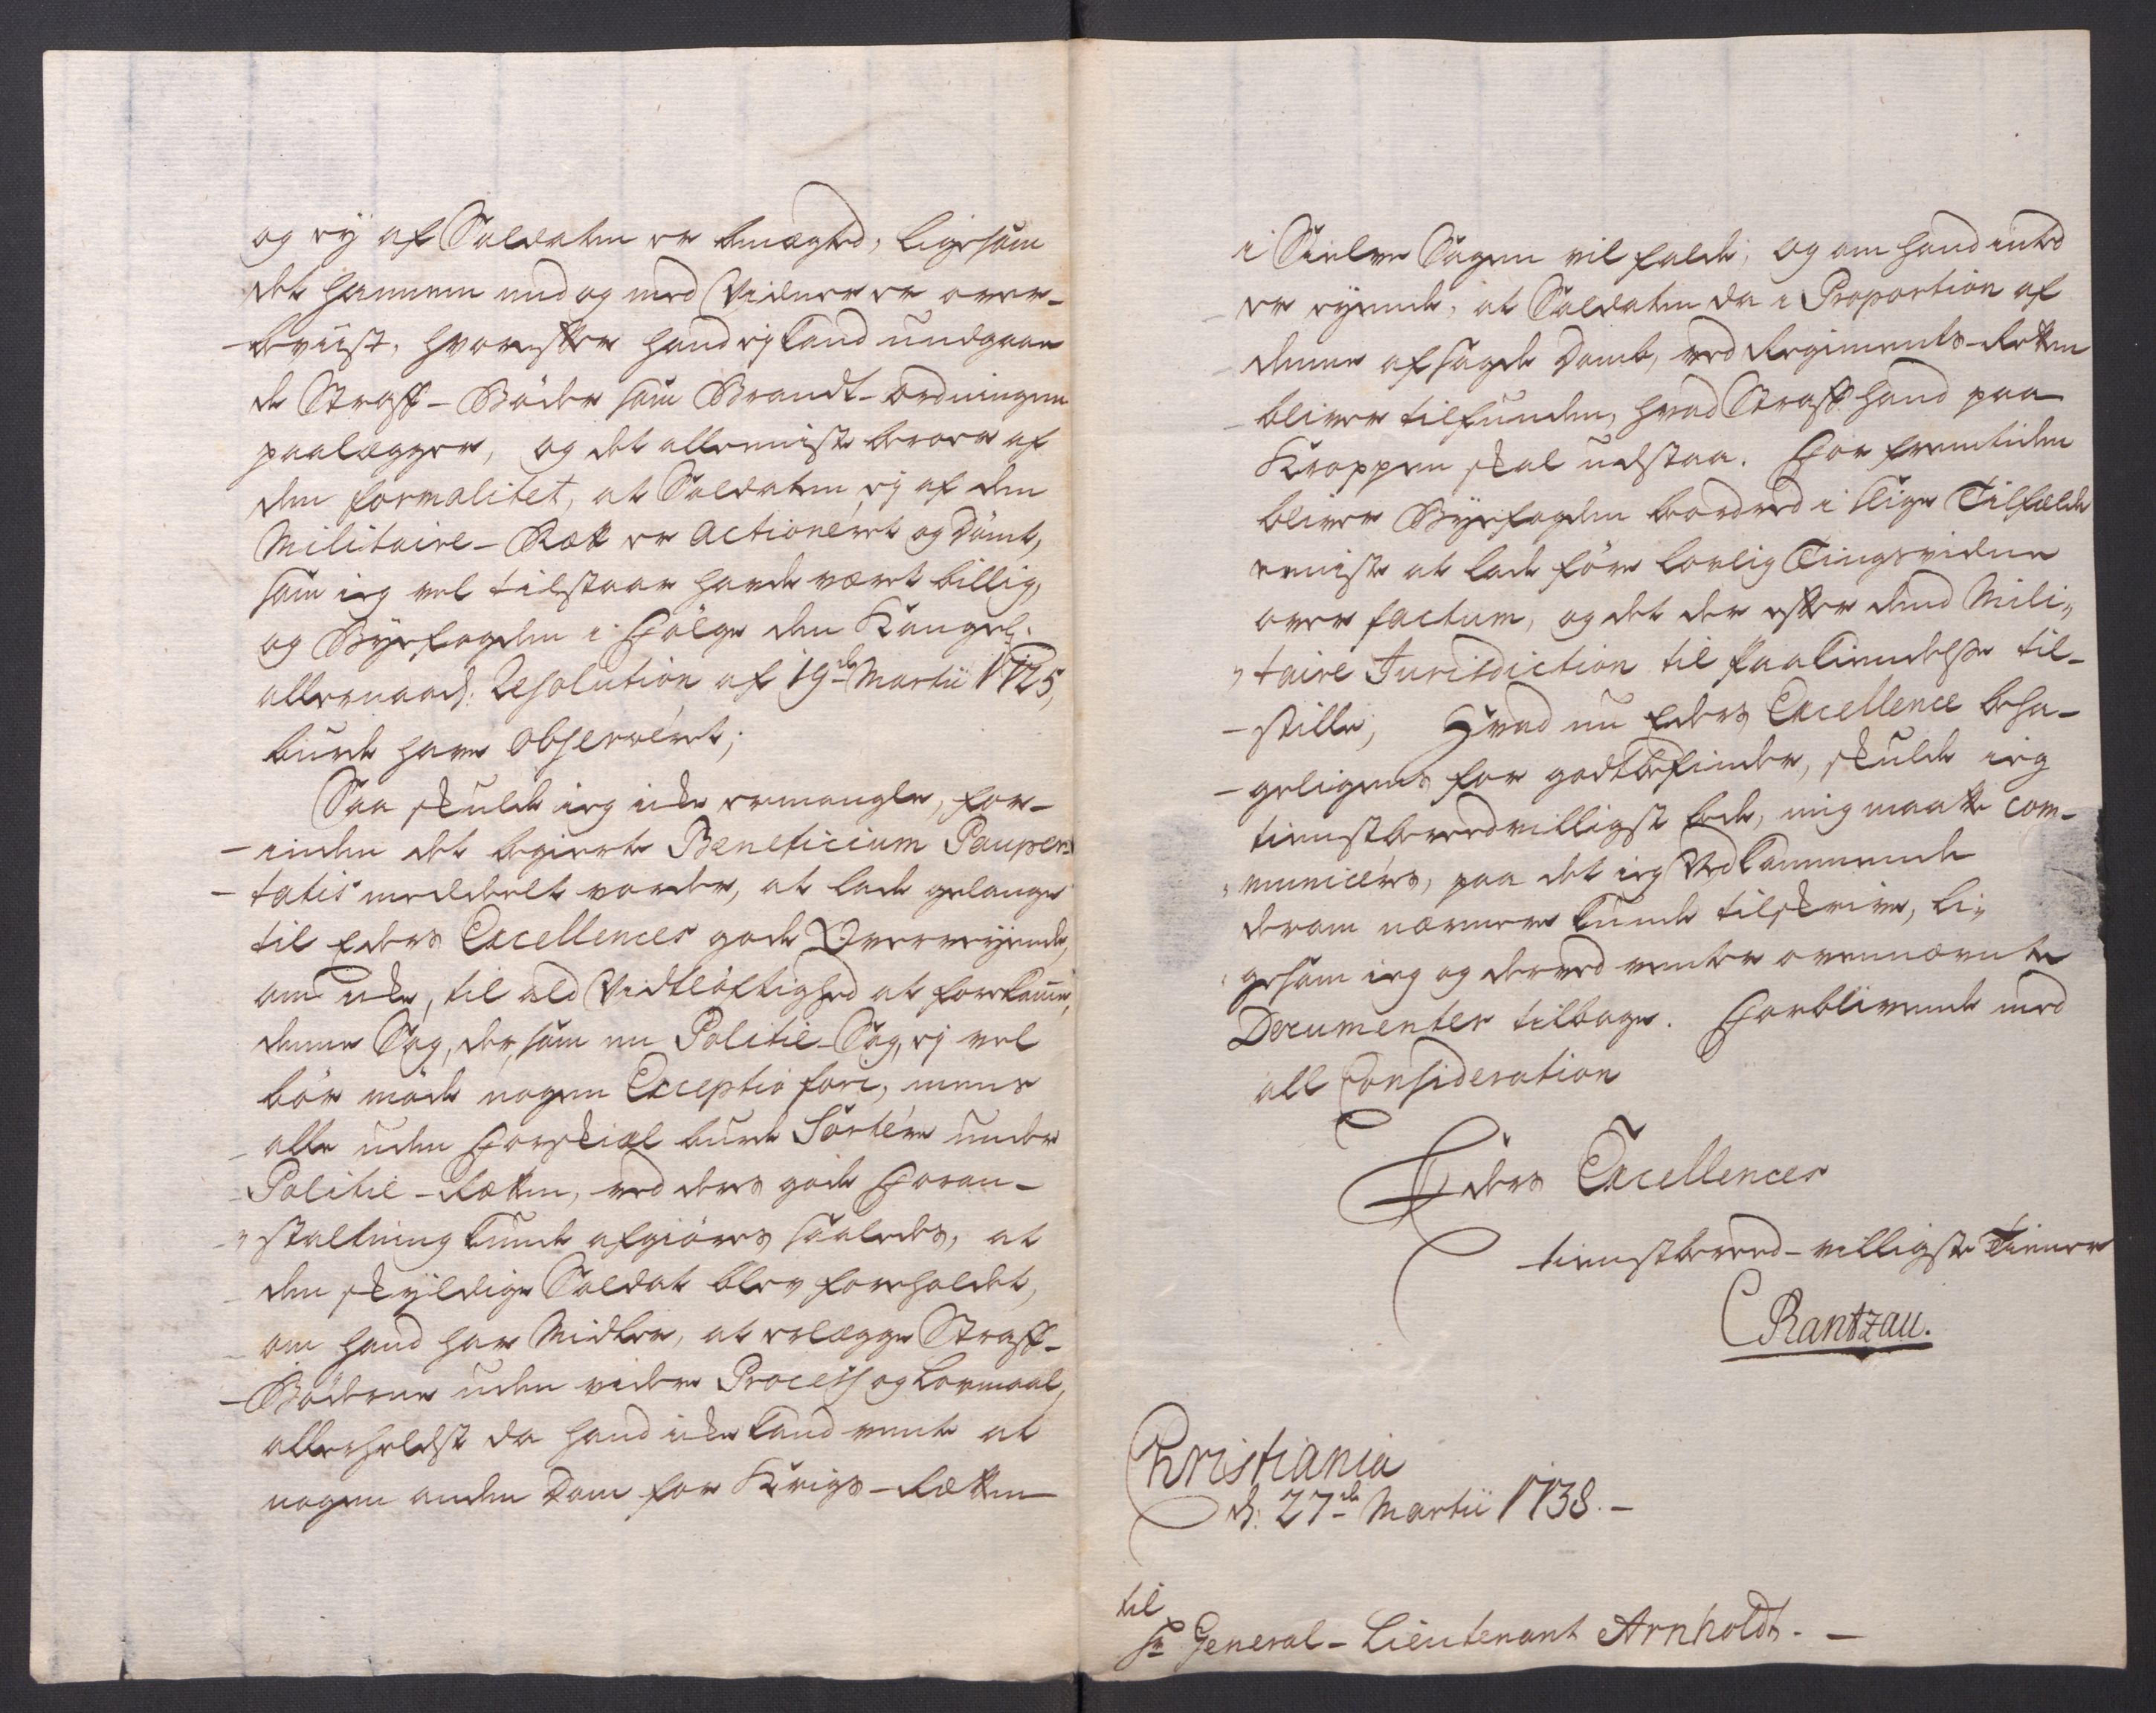 og ej af Soldaten er benægted, ligesom
det hannem end og med Vidner er over-
-beviist, hvorefter hand ej kand undgaae
de Straff-Böder som Brandt-ordningen
paalægger, og det alleeniste beroer af
den formalitet, at Soldaten ej af den
Militaire-Rætt er Actionéret og Dömt,
som ieg vel tilstaar hafde været billig,
og Byefogden i Fölge den Kongel:
allernaad: Resolution af 19de Martii 1725,
burde have Observéret;
Saa skulde ieg icke ermangle, for-
-inden det begierte Beneficium Pauper-
-tatis meddeelt vorder, at lade gelange
til Eders Excellences gode Overveyende,
om icke, til ald Vidtlöftighed at forekomme,
denne Sag, der, som en Politie-Sag, ej vel
bör möde nogen Exceptio fori, mens
alle uden Forskiæl burde Sortére under
Politie-Rætten, ved deres gode Foran-
-staltning kunde afgiöres saaledes, at
den skyldige Soldat blev foreholdet,
om hand har Midler, at erlægge Straff-
-Böderne uden videre Process og Lovmaal,
allerheldst da hand icke kand vente at
nogen anden Dom for Krigs-Rætten
i Sielve Sagen vil falde; og om hand inted
er eyende, at Soldaten da i Proportion af
denne afsagde Domb, ved Regiments-Retten
bliver tilfunden, hvad Straff hand paa
Kroppen skal udstaa. For fremtiden
bliver Byefogden beordred i slige Tilfælde
eeniste at lade före lovlig Tingsvidne
over factum, og det der efter dend Mili-
-taire Jurisdiction til Paakiendelse til-
-stille; Hvad nu Eders Excellence beha-
-geligens for godt befinder, skulde ieg
tienstbereedvilligst bede, mig maatte com-
-municéres, paa det ieg Vedkommende
derom nærmere kunde tilskrive, li-
-gesom ieg og derved venter ovennævnte
Documenter tilbage. Forblivende med
all Consideration
Eders Excellences
tienstbereed-villigste Tiener
C Rantzau.
Christiania
d: 27de Martii 1738.-
til
Hr General-Lieutenant Arnholdt.-